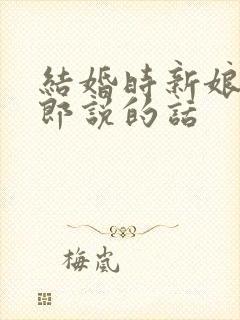 結婚時新娘
郎説的話
梅嵐